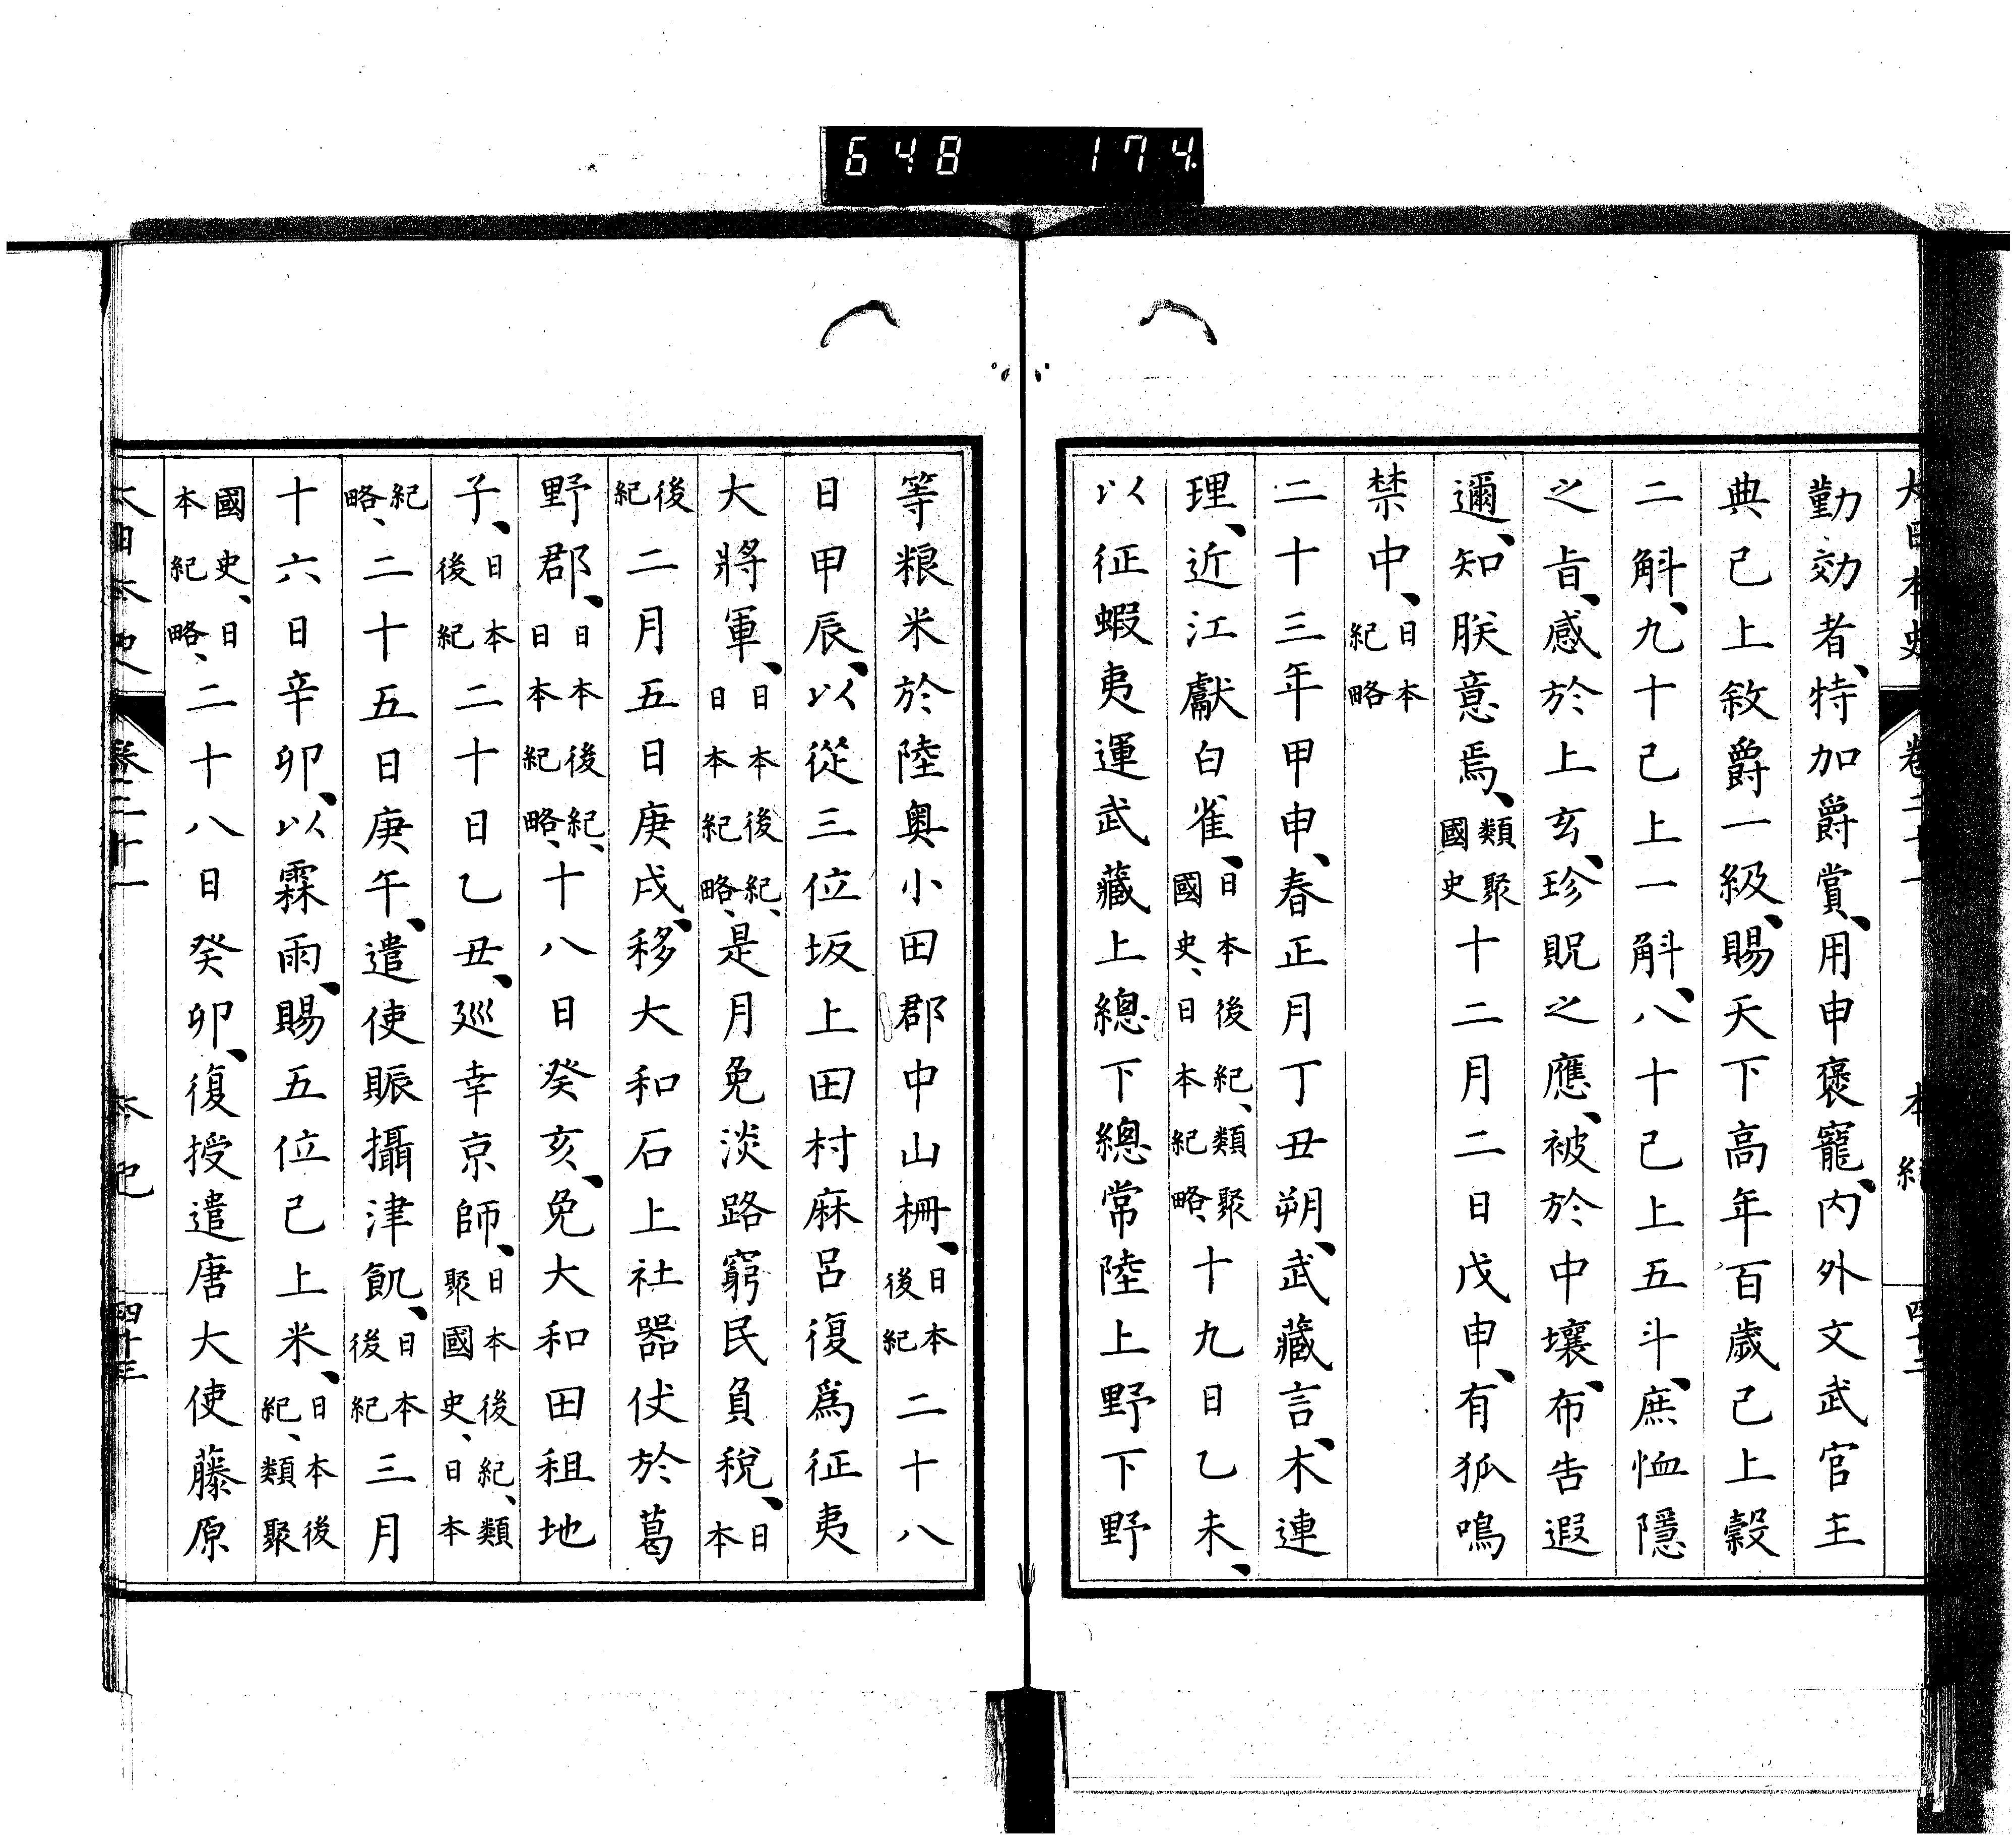 648 174
大日本史 卷二十一 本紀 四十二
勤効者、特加爵賞、用申褒寵、内外文武官主
典已上敘爵一級、賜天下高年百歲已上穀
二斛、九十已上一斛、八十已上五斗、庶恤隱
之旨、感於上玄、珍貺之應、被於中壤、布告遐
邇、知朕意焉、類聚國史十二月二日戊申、有狐鳴
禁中、日本紀略
二十三年甲申、春正月丁丑朔、武藏言、木連
理、近江獻白雀、日本後紀、類聚國史、日本紀略、十九日乙未、
以征蝦夷運武藏上總下總常陸上野下野
等粮米於陸奥小田郡中山柵、日本後紀二十八
日甲辰、以從三位坂上田村麻呂復爲征夷
大將軍、日本後紀、日本紀略、是月免淡路窮民負稅、日本
後紀二月五日庚戌、移大和石上社器仗於葛
野郡、日本後紀、日本紀略、十八日癸亥、免大和田租地
子、日本後紀二十日乙丑、巡幸京師、日本後紀、類聚國史、日本
紀略、二十五日庚午、遣使賑攝津飢、日本後紀三月
十六日辛卯、以霖雨、賜五位已上米、日本後紀、類聚
國史、日本紀略、二十八日癸卯、復授遣唐大使藤原
大日本史 卷二十一 本紀 四十三